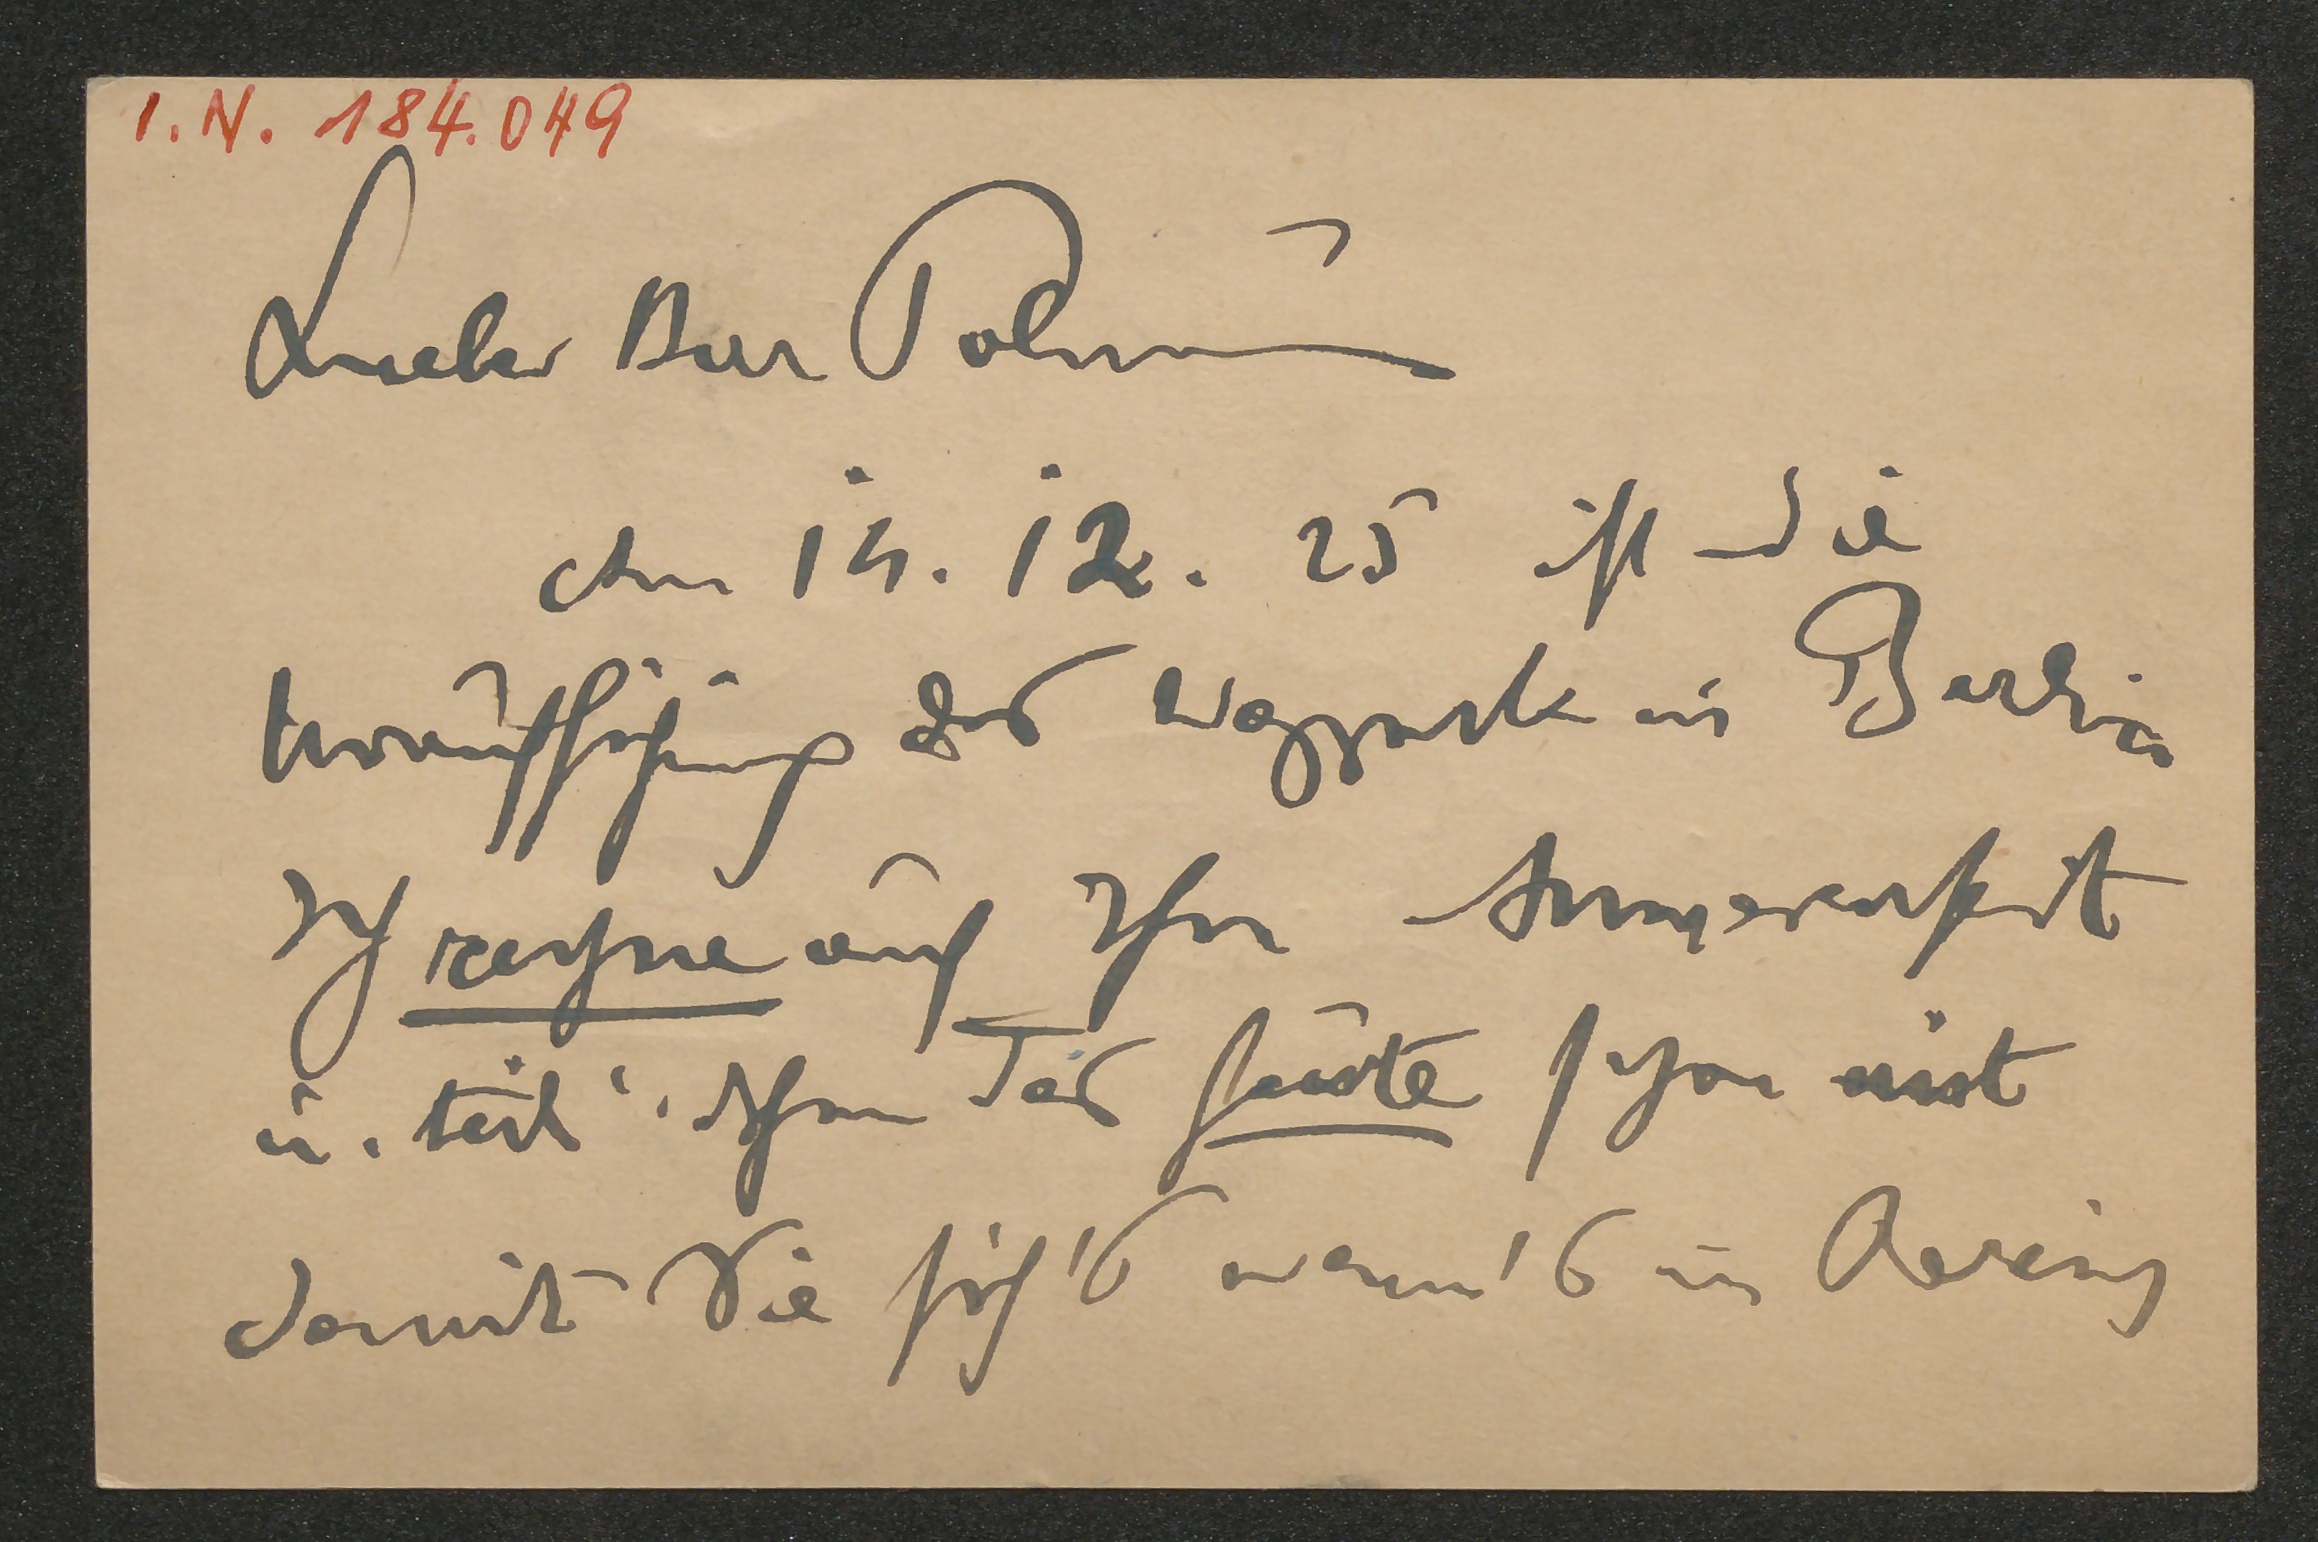 I.N. 184.049
Lieber Herr Polnau
am 14. 12. 25 ist die
Uraufführung des Wozzeck in Berlin
Ich rechne auf Ihre Anwesenheit
u. teil' Ihnen das heute schon mit
damit Sie sich's wenn's in